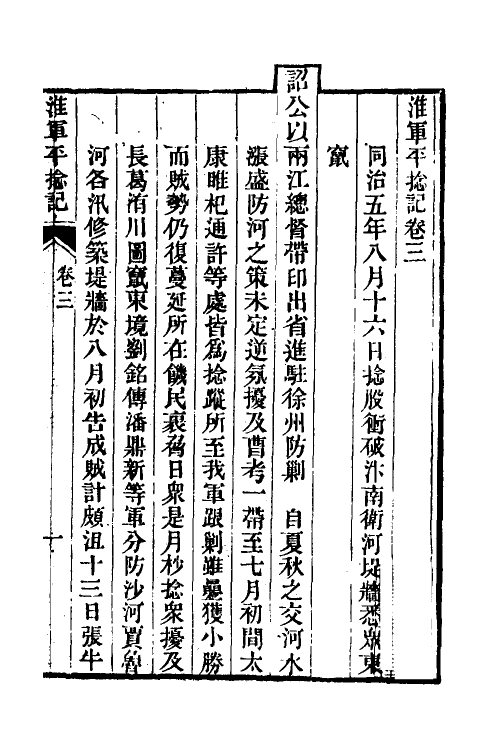 淮軍平捻記卷三
同治五年八月十六日捻股衝破汴南衛河堤牆悉眾東
竄
詔公以兩江總督帶印出省進駐徐州防剿 自夏秋之交河水
漲盛防河之策未定逆氛擾及曹考一帶至七月初間太
康睢杞通許等處皆為捻蹤所至我軍跟剿雖疊獲小勝
而賊勢仍復蔓延所在饑民裹脅日衆是月杪捻衆擾及
長葛洧川圖竄東境劉銘傳潘鼎新等軍分防沙河賈魯
河各汛修築堤牆於八月初告成賊計頗沮十三日張牛
淮軍平捻記
卷三
一